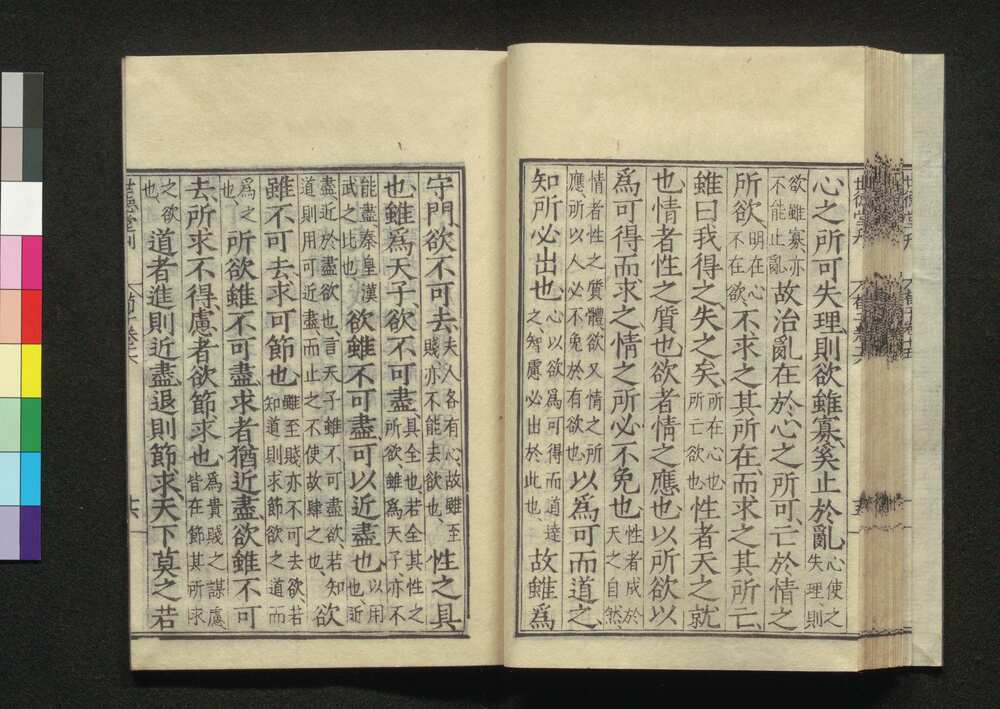 心之所可失理則欲雖寡奚止於亂心使之失理則
欲雖寡亦不能止亂故治亂在於心之所可亡於情之
所欲明在心不在欲不求之其所在而求之其所亡
雖曰我得之失之矣所在心也所亡欲也性者天之就
也情者性之質也欲者情之應也以所欲以
爲可得而求之情之所必不免也性者成於天之自然
情者性之質體欲又情之所應所以人必不免於有欲也以爲可而道之
知所必出也心以欲爲可得而道達之智慮必出於此也故雖爲
守門欲不可去夫人各有心故雖至賤亦不能去欲也性之具
也雖爲天子欲不可盡具全也若全其性之所欲雖爲天子亦不
能盡秦皇漢武之比也欲雖不可盡可以近盡也以用也所
盡近於盡欲也言天子雖不可盡欲若知道則用可近盡而止之不使故肆之也欲
雖不可去求可節也雖至賤亦不可去欲若知道則求節欲之道而
爲之也所欲雖不可盡求者猶近盡欲雖不可
去所求不得慮者欲節求也爲貴賤之謀慮皆在節其所求
之欲也道者進則近盡退則節求天下莫之若
世德堂刊